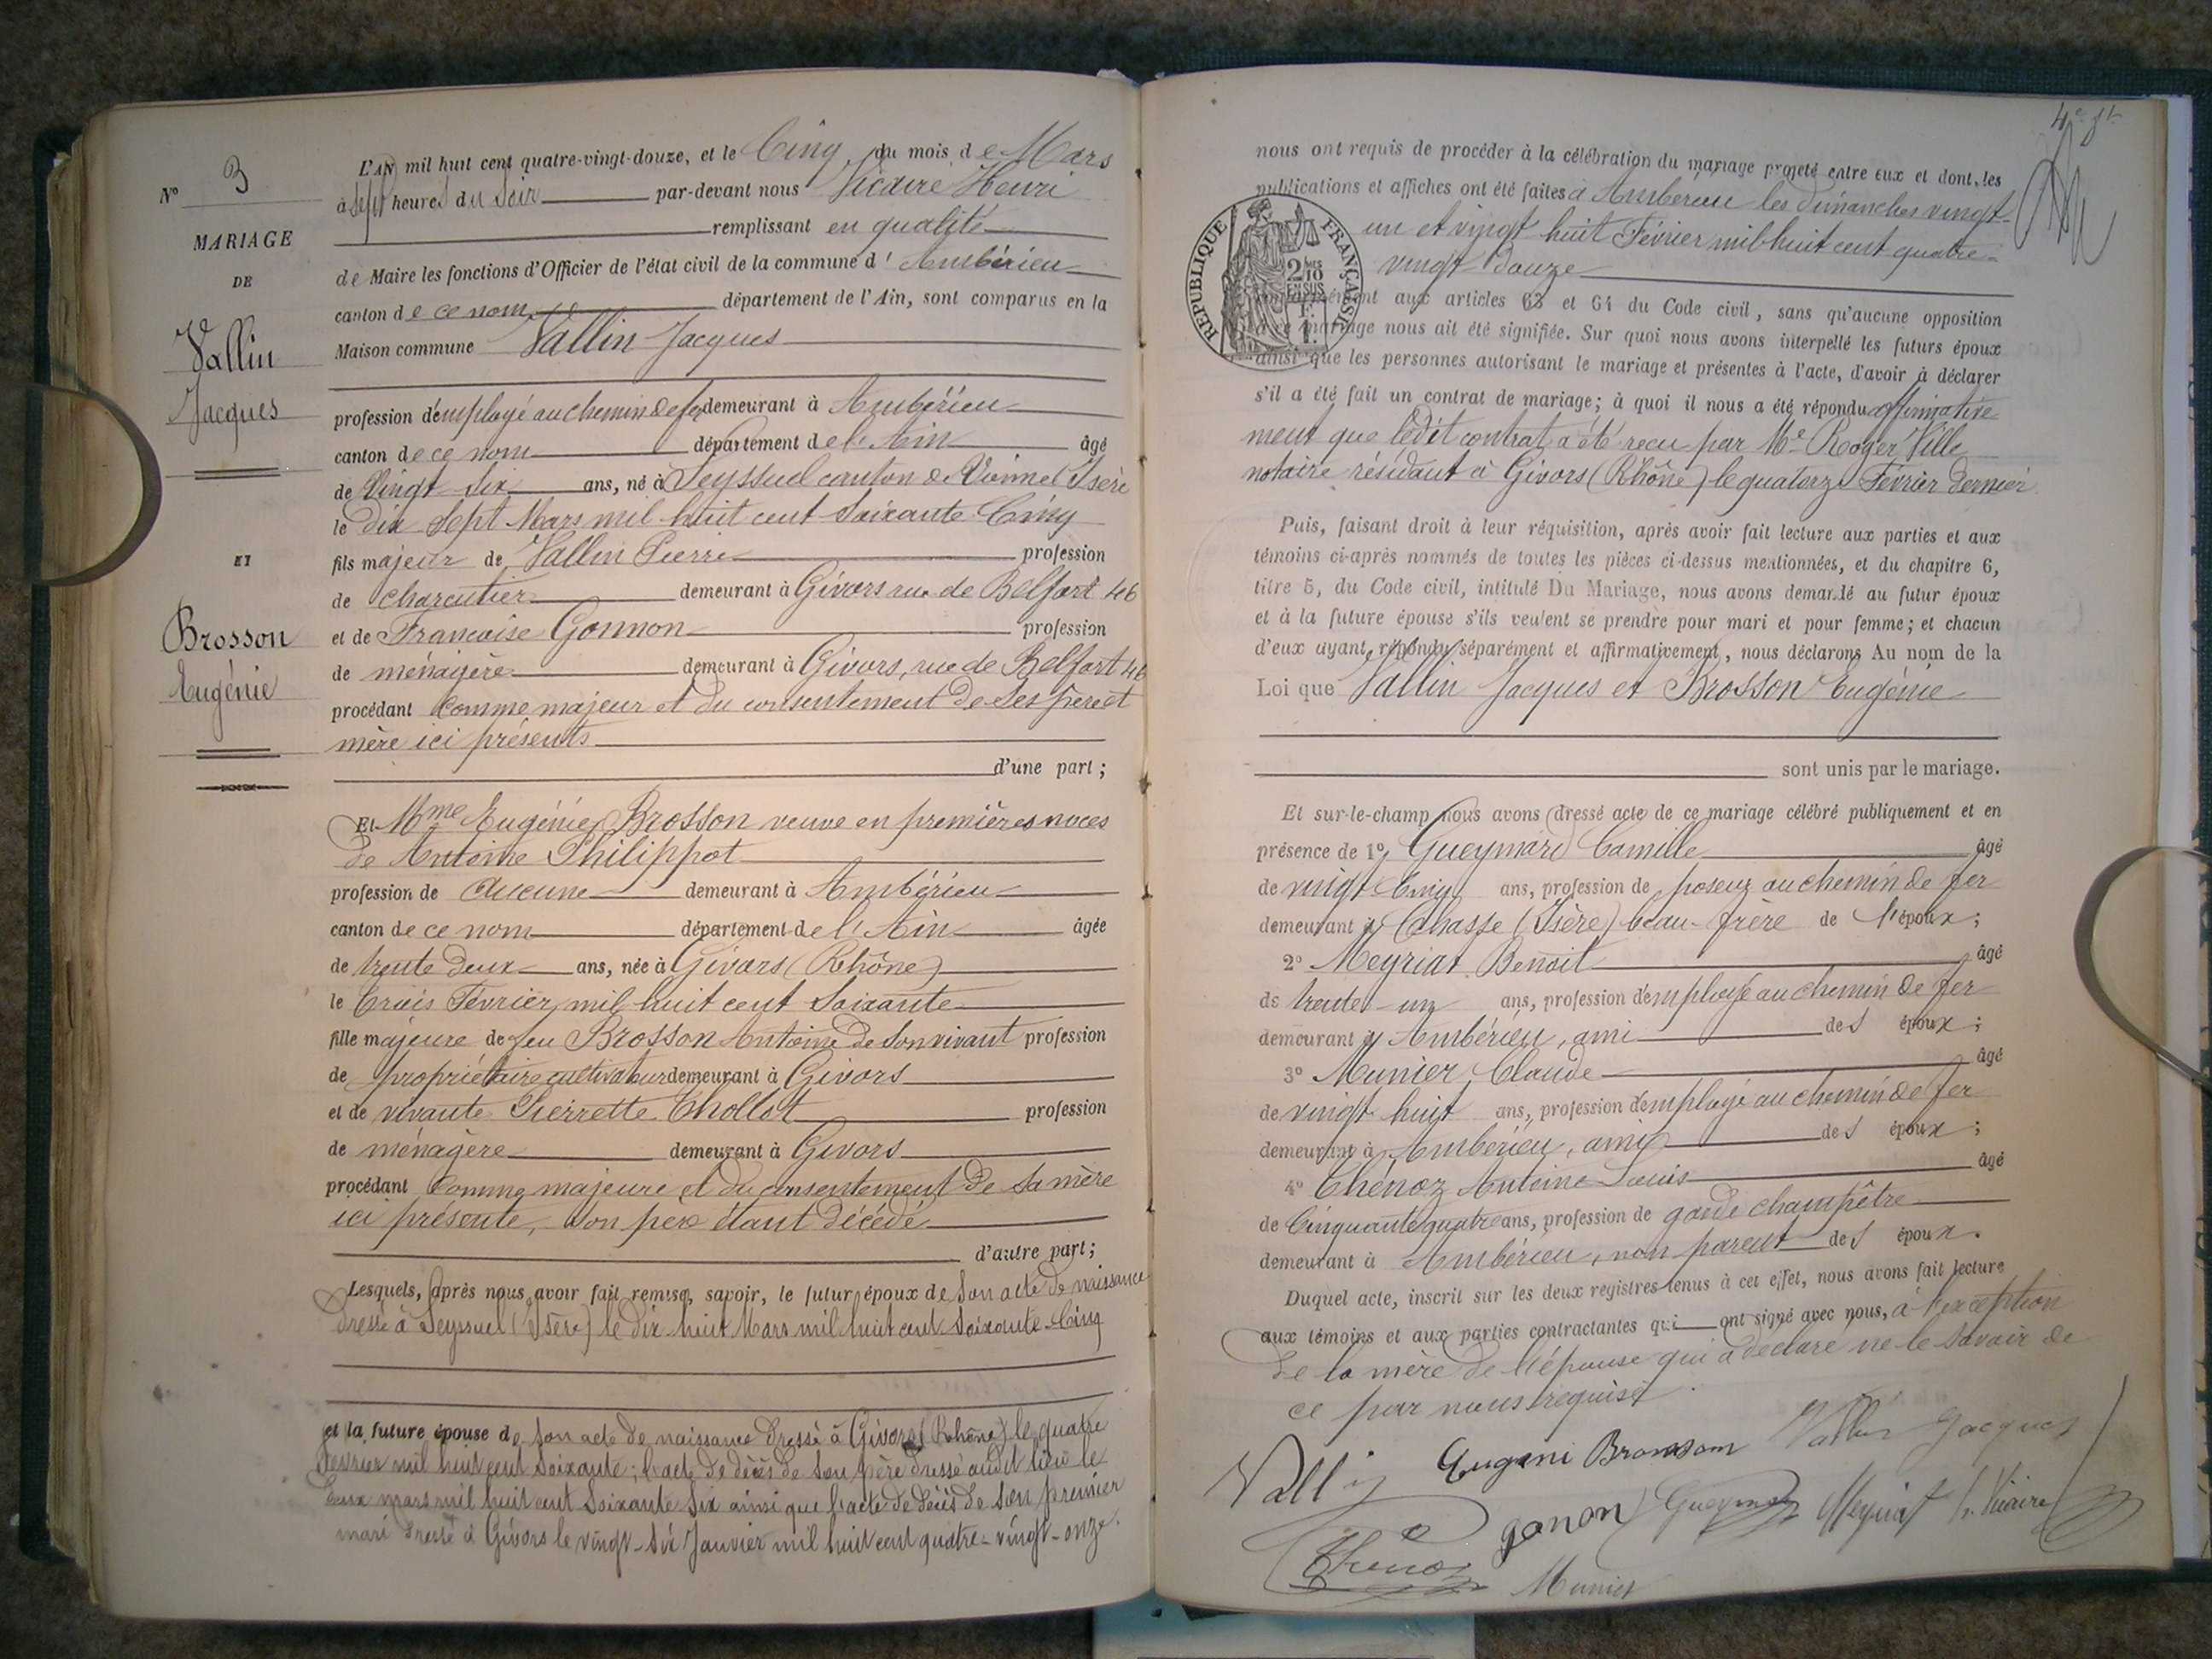 N° 3
MARIAGE
DE
Vallin
Jacques
ET
Brosson
Eugénie
L'AN mil huit cent quatre-vingt-douze, et le Cinq du mois de Mars
à sept heures du Soir par-devant nous Vicaire Henri
remplissant en qualité
de Maire les fonctions d'Officier de l'état civil de la commune d'Ambérieu
canton de ce nom département de l'Ain, sont comparus en la
Maison commune Vallin Jacques
profession d'employé au chemin de fer demeurant à Ambérieu
canton de ce nom département de l'Ain âgé
de Vingt Six ans, né à Seyssuel canton de Vienne (Isère
le dix Sept Mars mil huit cent Soixante Cinq
fils majeur de Vallin Pierre profession
de charcutier demeurant à Givors rue de Belfort 46
et de Francoise Gonnon profession
de ménagère demeurant à Givors, rue de Belfort 46
procédant Comme majeur et du consentement de Ses père et
mère ici présents
d'une part ;
Et Mme Eugénie Brosson veuve en premières noces
de Antoine Philippot
profession de Aucune demeurant à Ambérieu
canton de ce nom département de l'Ain âgée
de trente deux ans, née à Givors (Rhône)
le trois Février mil huit cent Soixante
fille majeure de feu Brosson Antoine de Son vivant profession
de propriétaire cultivateur demeurant à Givors
et de vivante Pierrette Chollat profession
de ménagère demeurant à Givors
procédant Comme majeure et du consentement de Sa mère
ici présente, Son père étant décédé
d'autre part ;
Lesquels, après nous avoir fait remise, savoir, le futur époux de Son acte de naissance
dressé à Seyssuel (Isère) le dix huit Mars mil huit cent Soixante Cinq
et la future épouse de Son acte de naissance dressé à Givors (Rhône) le quatre
Février mil huit cent Soixante ; l'acte de décès de Son père dressé audit lieu le
deux mars mil huit cent Soixante Six ainsi que l'acte de décès de Son premier
mari dressé à Givors le vingt-Six Janvier mil huit cent quatre-vingt-onze.
nous ont requis de procéder à la célébration du mariage projeté entre eux et dont les
publications et affiches ont été faites à Ambérieu les dimanches vingt-
un et vingt huit Février mil huit cent quatre-
vingt douze
RÉPUBLIQUE FRANÇAISE
2 10
EN SUS
aux articles 63 et 64 du Code civil, sans qu'aucune opposition
mariage nous ait été signifiée. Sur quoi nous avons interpellé les futurs époux
ainsi que les personnes autorisant le mariage et présentes à l'acte, d'avoir à déclarer
s'il a été fait un contrat de mariage ; à quoi il nous a été répondu affirmative
ment que ledit contrat a été recu par Me Roger Ville
notaire résidant à Givors (Rhône) le quatorze Février dernier
Puis, faisant droit à leur réquisition, après avoir fait lecture aux parties et aux
témoins ci-après nommés de toutes les pièces ci-dessus mentionnées, et du chapitre 6,
titre 5, du Code civil, intitulé Du Mariage, nous avons demandé au futur époux
et à la future épouse s'ils veulent se prendre pour mari et pour femme ; et chacun
d'eux ayant répondu séparément et affirmativement, nous déclarons Au nom de la
Loi que Vallin Jacques et Brosson Eugénie
sont unis par le mariage.
Et sur-le-champ nous avons dressé acte de ce mariage célébré publiquement et en
présence de 1° Gueymard Camille âgé
de vingt Cinq ans, profession de poseur au chemin de fer
demeurant à Chasse (Isère) beau-frère de l'époux ;
2° Meyriat Benoit âgé
de trente un ans, profession d'employé au chemin de fer
demeurant à Ambérieu, ami des époux ;
3° Munier Claude âgé
de vingt huit ans, profession d'employé au chemin de fer
demeurant à Ambérieu, ami des époux ;
4° Thénoz Antoine Louis âgé
de Cinquante quatre ans, profession de garde champêtre
demeurant à Ambérieu, non parent des époux.
Duquel acte, inscrit sur les deux registres tenus à cet effet, nous avons fait lecture
aux témoins et aux parties contractantes qui ont signé avec nous, à l'exception
de la mère de l'épouse qui a déclaré ne le Savoir de
ce par nous requise.
Vallin Eugeni Bronsom Vallin Jacques
gonon Gueymard Meyriat H. Vicaire
Thénoz Munier